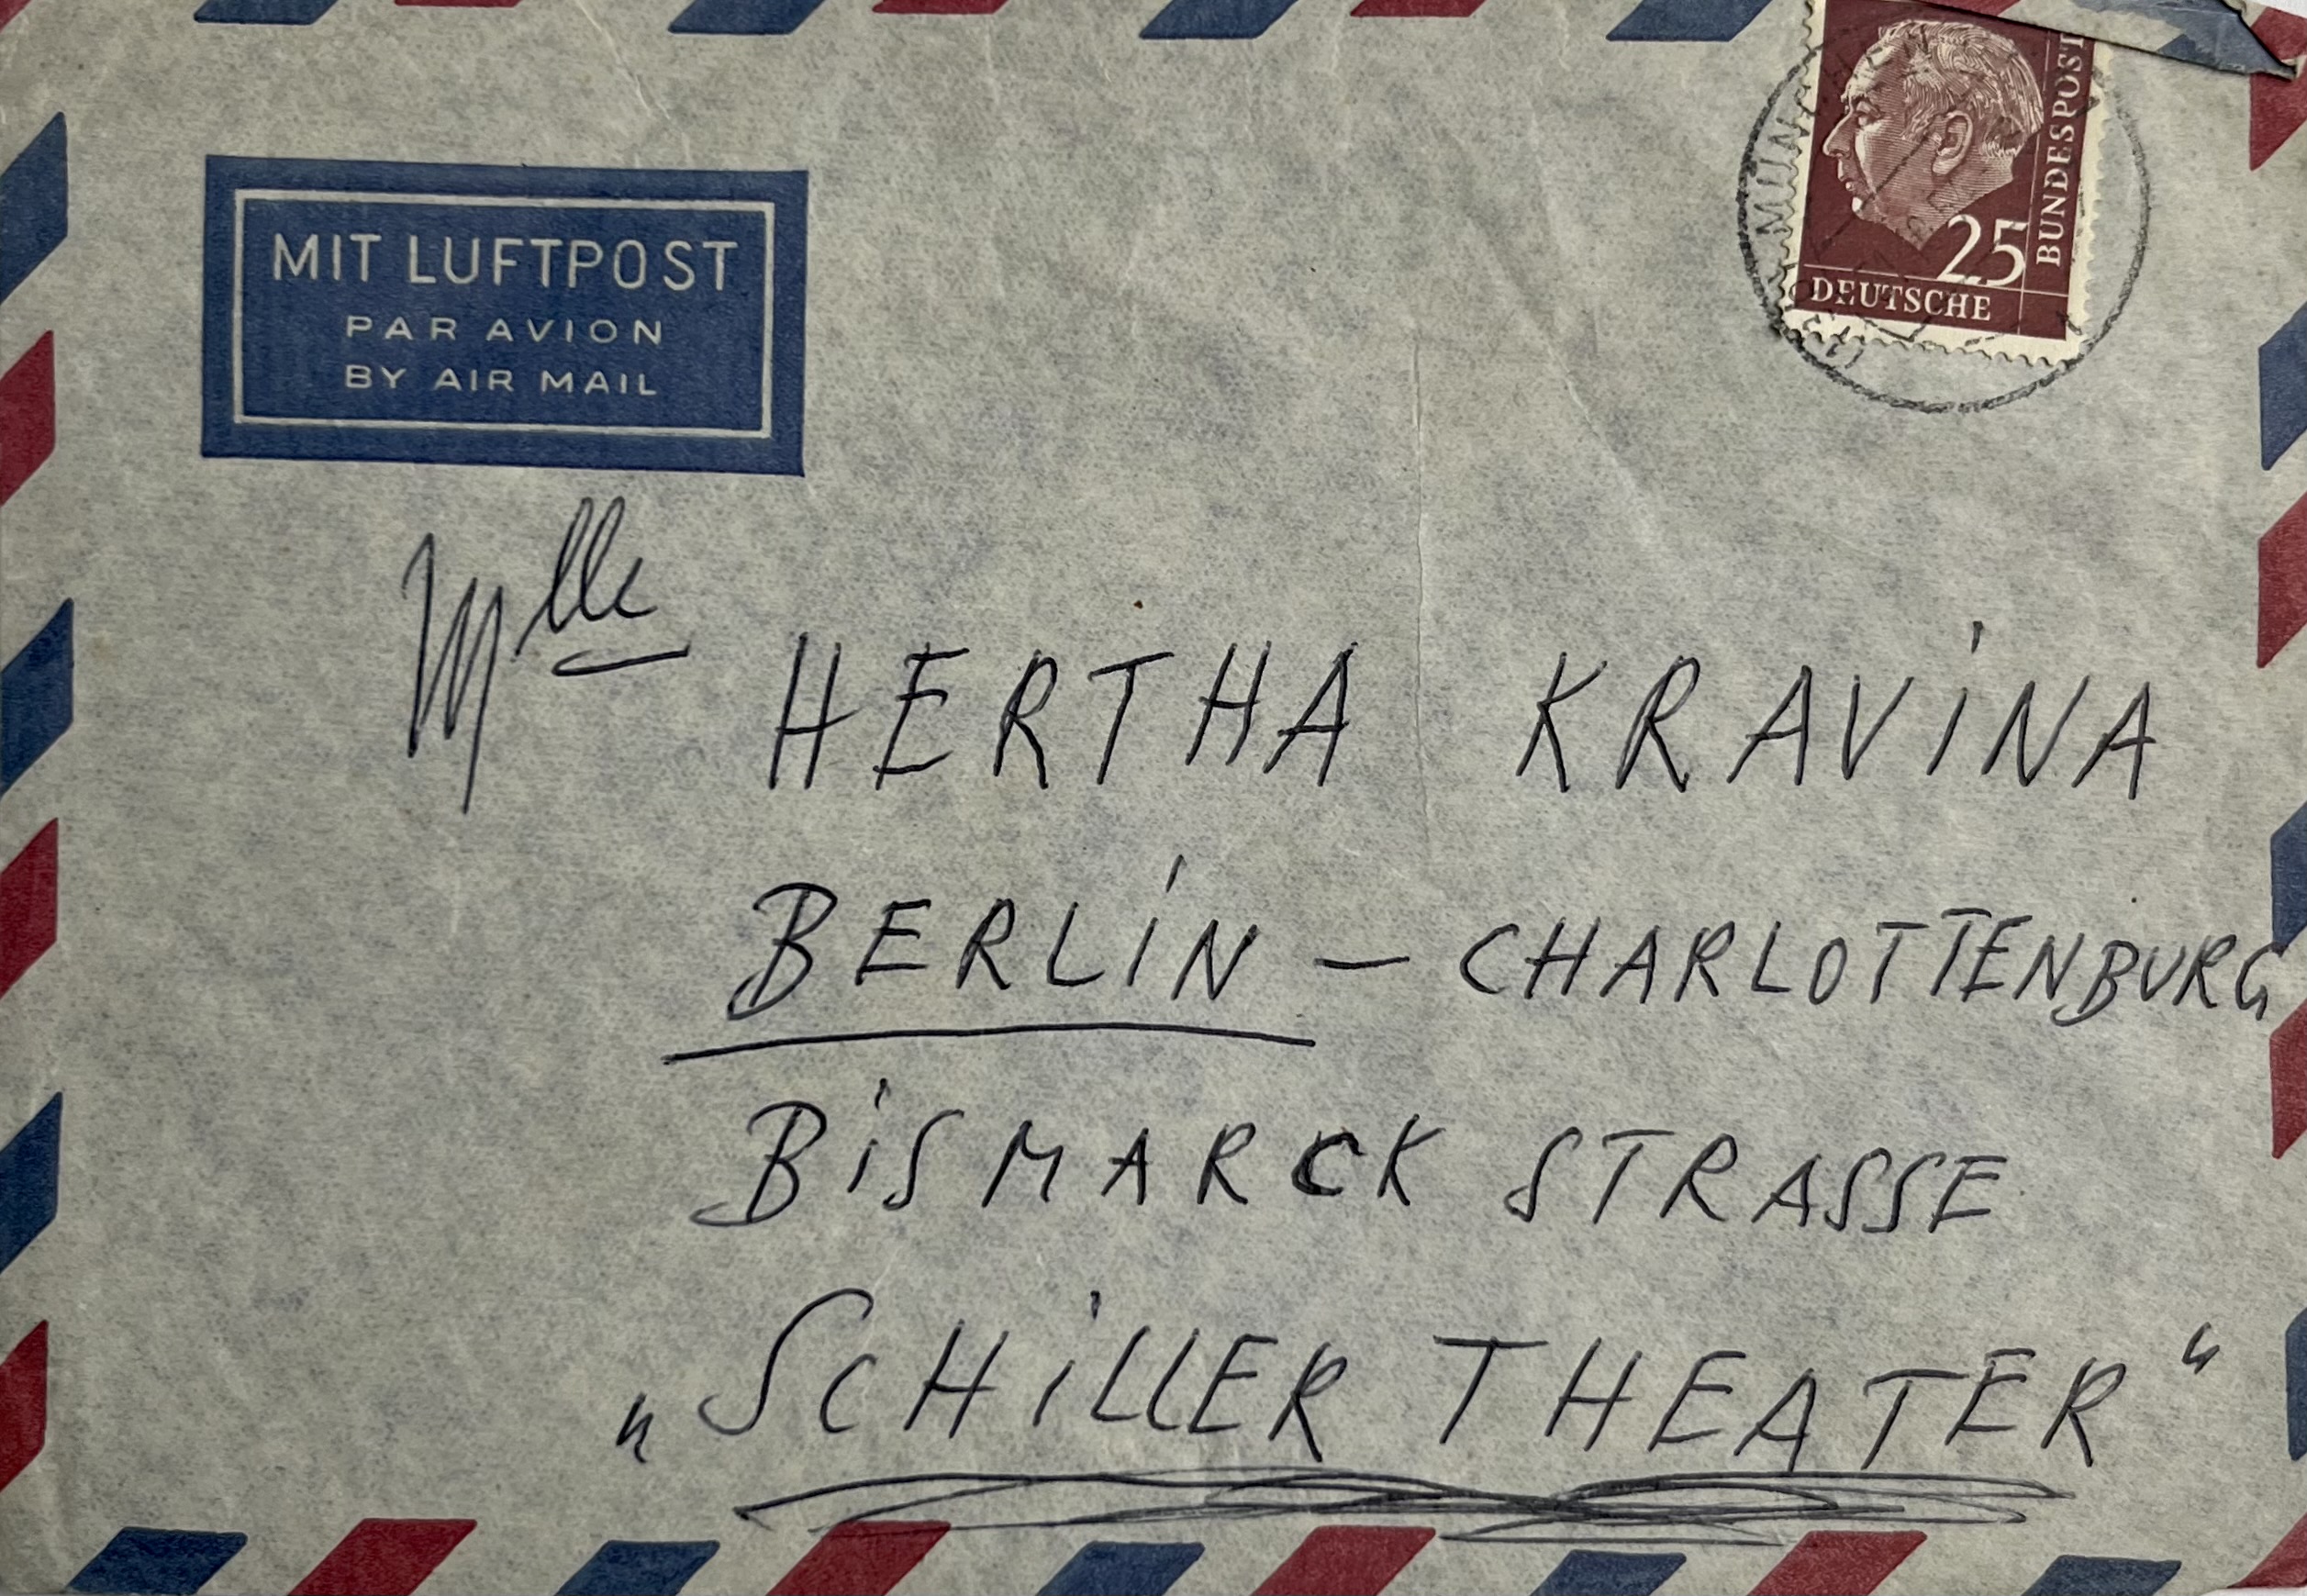 MIT LUFTPOST
PAR AVION
BY AIR MAIL
25
DEUTSCHE
BUNDESPOST
Mlle HERTHA KRAViNA
BERLiN – CHARLOTTENBURG
BiSMARCK STRASSE
„SCHiLLER THEATER“